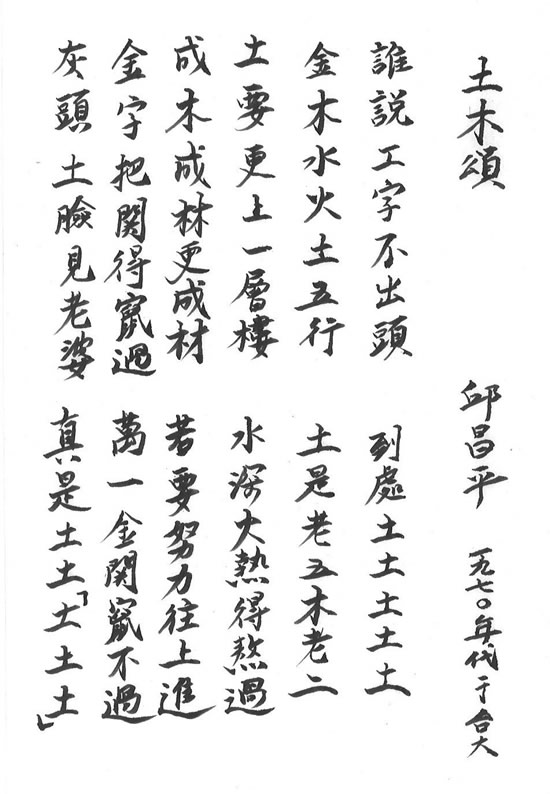 土木頌 邱昌平 一九七〇年代于台大
誰説工字不出頭 到處土土土土土
金木水火土五行 土是老五木老二
土要更上一層樓 水深火熱得熬過
成木成林更成材 若要努力往上進
金字把関得竄過 萬一金関竄不過
灰頭土臉見老婆 真是土土「土土土」